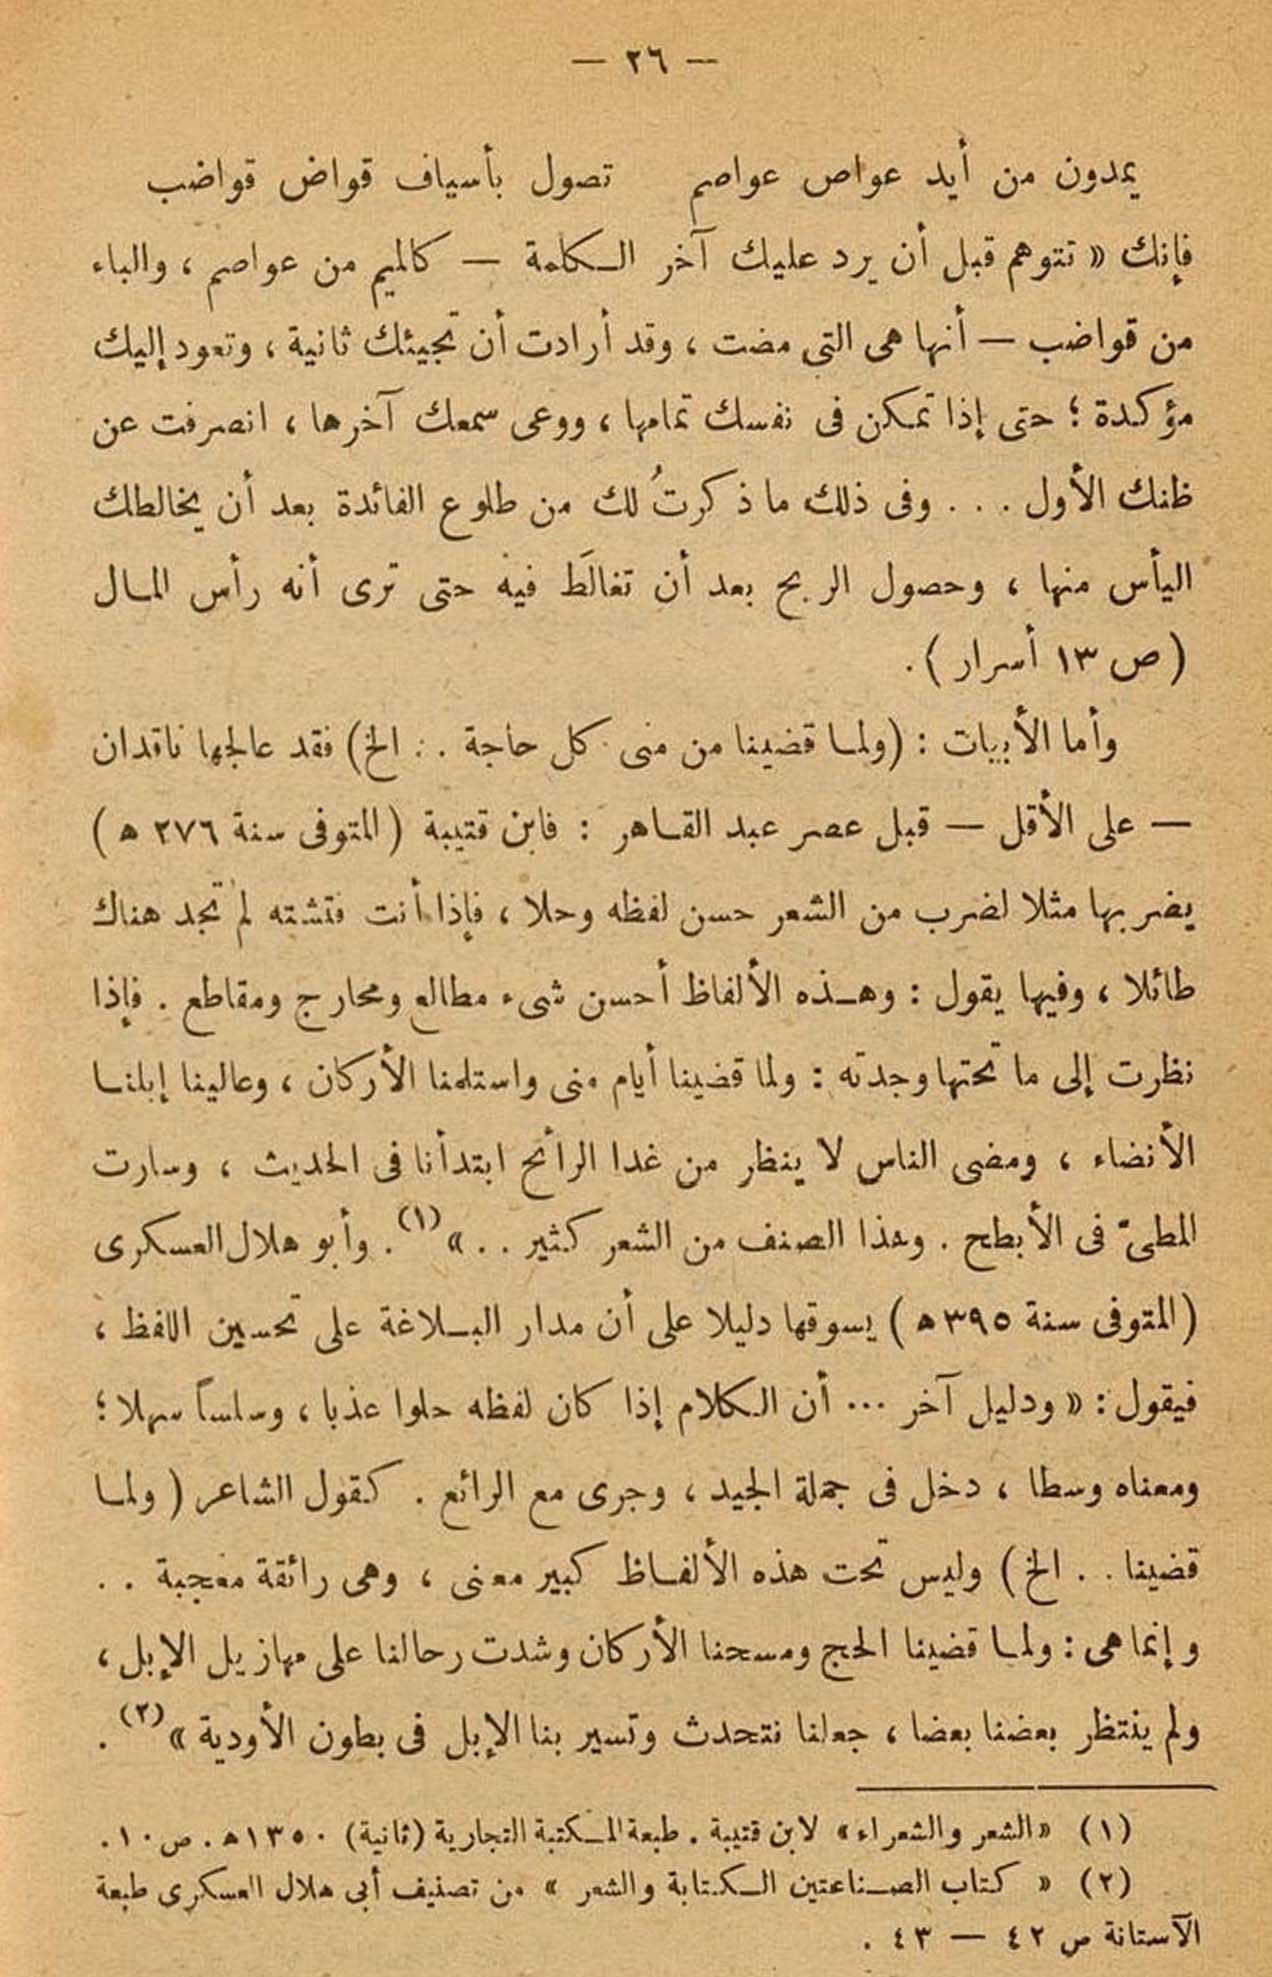 — ٢٦ —
يمدون من أيد عواص عواصم تصول بأسياف قواض قواضب
فإنك « تتوهم قبل أن يرد عليك آخر الكلمة — كالميم من عواصم ، والباء
من قواضب — أنها هى التى مضت ، وقد أرادت أن تجيئك ثانية ، وتعود إليك
مؤكدة ؛ حتى إذا تمكن فى نفسك تمامها ، ووعى سمعك آخرها ، انصرفت عن
ظنك الأول . . . وفى ذلك ما ذكرتُ لك من طلوع الفائدة بعد أن يخالطك
اليأس منها ، وحصول الربح بعد أن تغالَط فيه حتى ترى أنه رأس المال
( ص ١٣ أسرار ) .
وأما الأبيات : (ولما قضينا من منى كل حاجة . . الخ) فقد عالجها ناقدان
— على الأقل — قبل عصر عبد القاهر : فابن قتيبة ( المتوفى سنة ٢٧٦ ه )
يضربها مثلا لضرب من الشعر حسن لفظه وحلا ، فإذا أنت فتشته لم تجد هناك
طائلا ، وفيها يقول : وهذه الألفاظ أحسن شىء مطالع ومخارج ومقاطع . فإذا
نظرت إلى ما تحتها وجدته : ولما قضينا أيام منى واستلمنا الأركان ، وعالينا إبلنا
الأنضاء ، ومضى الناس لا ينظر من غدا الرائح ابتدأنا فى الحديث ، وسارت
المطىّ فى الأبطح . وهذا الصنف من الشعر كثير . . » (١) . وأبو هلال العسكرى
( المتوفى سنة ٣٩٥ ه ) يسوقها دليلا على أن مدار البلاغة على تحسين اللفظ ،
فيقول : « ودليل آخر ... أن الكلام إذا كان لفظه حلوا عذبا ، وسلساً سهلا ؛
ومعناه وسطا ، دخل فى جملة الجيد ، وجرى مع الرائع . كقول الشاعر ( ولما
قضينا . . الخ ) وليس تحت هذه الألفاظ كبير معنى ، وهى رائقة معجبة . .
وإنما هى : ولما قضينا الحج ومسحنا الأركان وشدت رحالنا على مهازيل الإبل ،
ولم ينتظر بعضنا بعضا ، جعلنا نتحدث وتسير بنا الإبل فى بطون الأودية » (٢) .
(١) «الشعر والشعراء» لابن قتيبة . طبعة المكتبة التجارية (ثانية) ١٣٥٠ه . ص١٠ .
(٢) « كتاب الصناعتين الكتابة والشعر » من تصنيف أبى هلال العسكرى طبعة
الآستانة ص ٤٢ — ٤٣ .